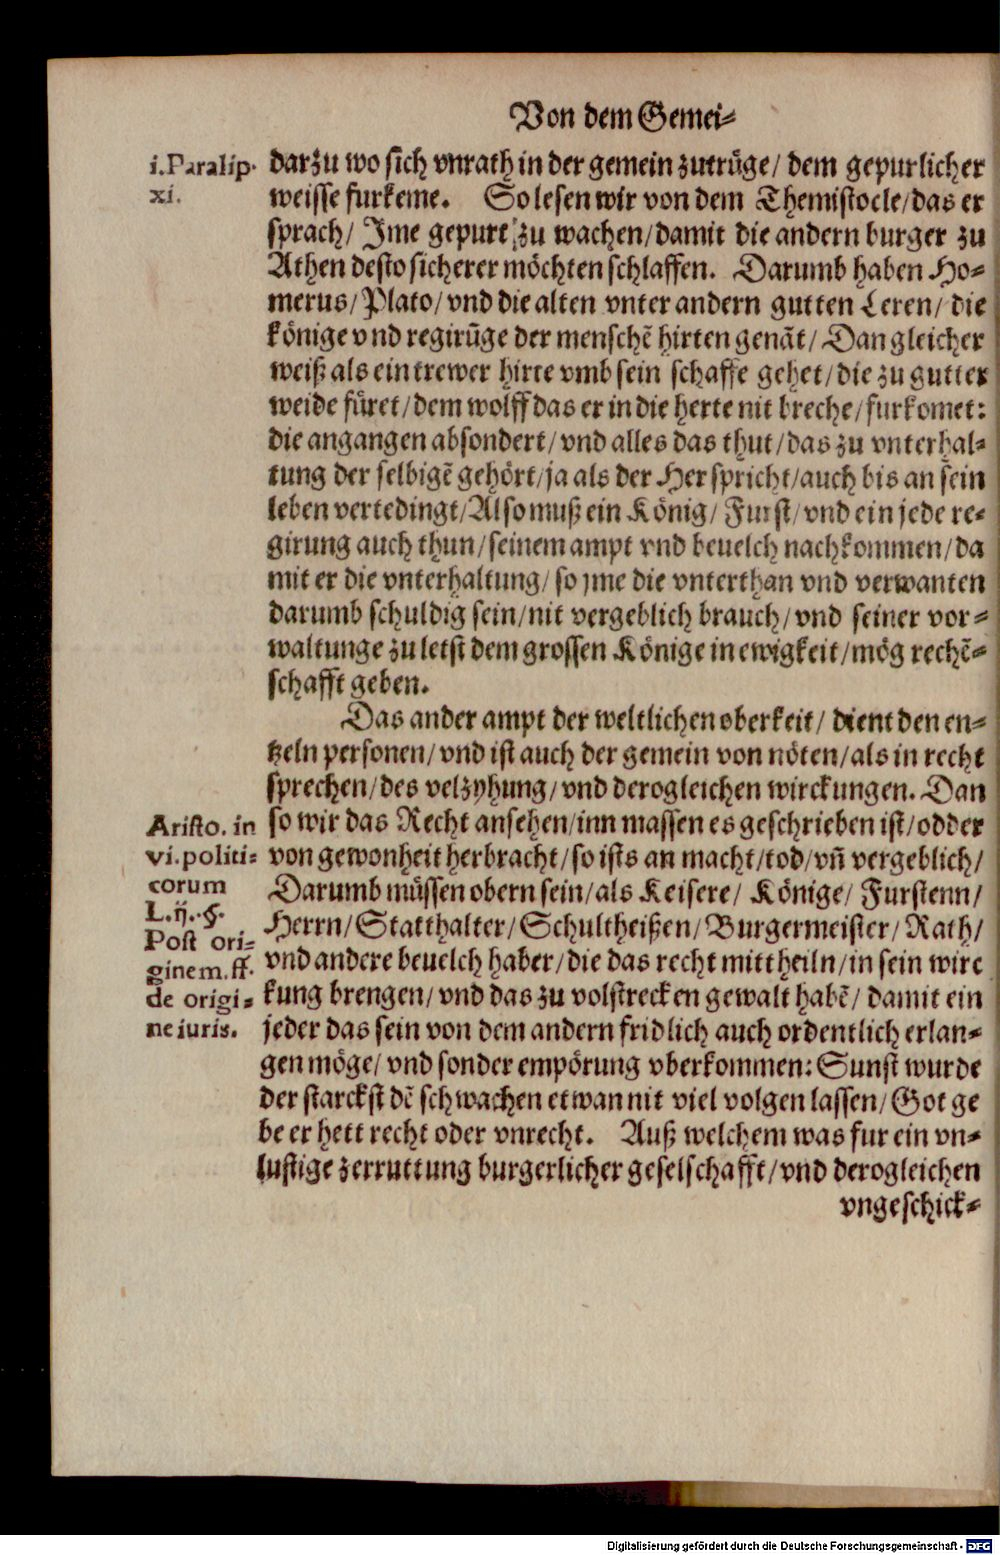 Von dem Gemei⸗
i. Paralip.
xi.
darzu wo sich vnrath in der gemein zutrüge/ dem gepurlicher
weisse furkeme. So lesen wir von dem Themistocle/ das er
sprach/ Ime gepurt zu wachen/ damit die andern burger zu
Athen desto sicherer möchten schlaffen. Darumb haben Ho⸗
merus/ Plato/ vnd die alten vnter andern gutten Leren/ die
könige vnd regirūge der menschē hirten genāt/ Dan gleicher
weiß als ein trewer hirte vmb sein schaffe gehet/ die zu gutter
weide füret/ dem wolff das er in die herte nit breche/ furkomet:
die angangen absondert/ vnd alles das thut/ das zu vnterhal⸗
tung der selbigē gehört/ ja als der Her spricht/ auch bis an sein
leben vertedingt/ Also muß ein König/ Furst/ vnd ein jede re⸗
girung auch thun/ seinem ampt vnd beuelch nachkommen/ da
mit er die vnterhaltung/ so yme die vnterthan vnd verwanten
darumb schuldig sein/ nit vergeblich brauch/ vnd seiner vor⸗
waltunge zu letst dem grossen Könige in ewigkeit/ mög rechē⸗
schafft geben.
Das ander ampt der weltlichen oberkeit/ dient den en⸗
tzeln personen/ vnd ist auch der gemein von nöten/ als in recht
sprechen/ des velzyhung/ vnd derogleichen wirckungen. Dan
so wir das Recht ansehen/ inn massen es geschrieben ist/ odder
von gewonheit herbracht/ so ists an macht/ tod/ vn̄ vergeblich/
Darumb müssen obern sein/ als Keisere/ Könige/ Furstenn/
Herrn/ Statthalter/ Schultheißen/ Burgermeister/ Rath/
vnd andere beuelch haber/ die das recht mittheiln/ in sein wirc
kung brengen/ vnd das zu volstrecken gewalt habē/ damit ein
jeder das sein von dem andern fridlich auch ordentlich erlan⸗
gen möge/ vnd sonder empörung vberkommen: Sunst wurde
der starckst dē schwachen etwan nit viel volgen lassen/ Got ge
be er hett recht oder vnrecht. Auß welchem was fur ein vn⸗
lustige zerruttung burgerlicher geselschafft/ vnd derogleichen
vngeschick⸗
Aristo. in
vi. politi⸗
corum
L. ij. §.
Post ori⸗
ginem. ff.
de origi⸗
ne iuris.
Digitalisierung gefördert durch die Deutsche Forschungsgemeinschaft - DFG